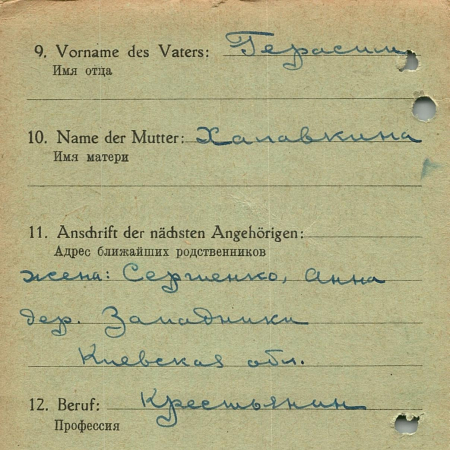 9. Vorname des Vaters: Герасим
Имя отца
10. Name der Mutter: Халавкина
Имя матери
11. Anschrift der nächsten Angehörigen:
Адрес ближайших родственников
жена: Сергиенко, Анна
дер. Западники
Киевская обл.
12. Beruf: Крестьянин
Профессия